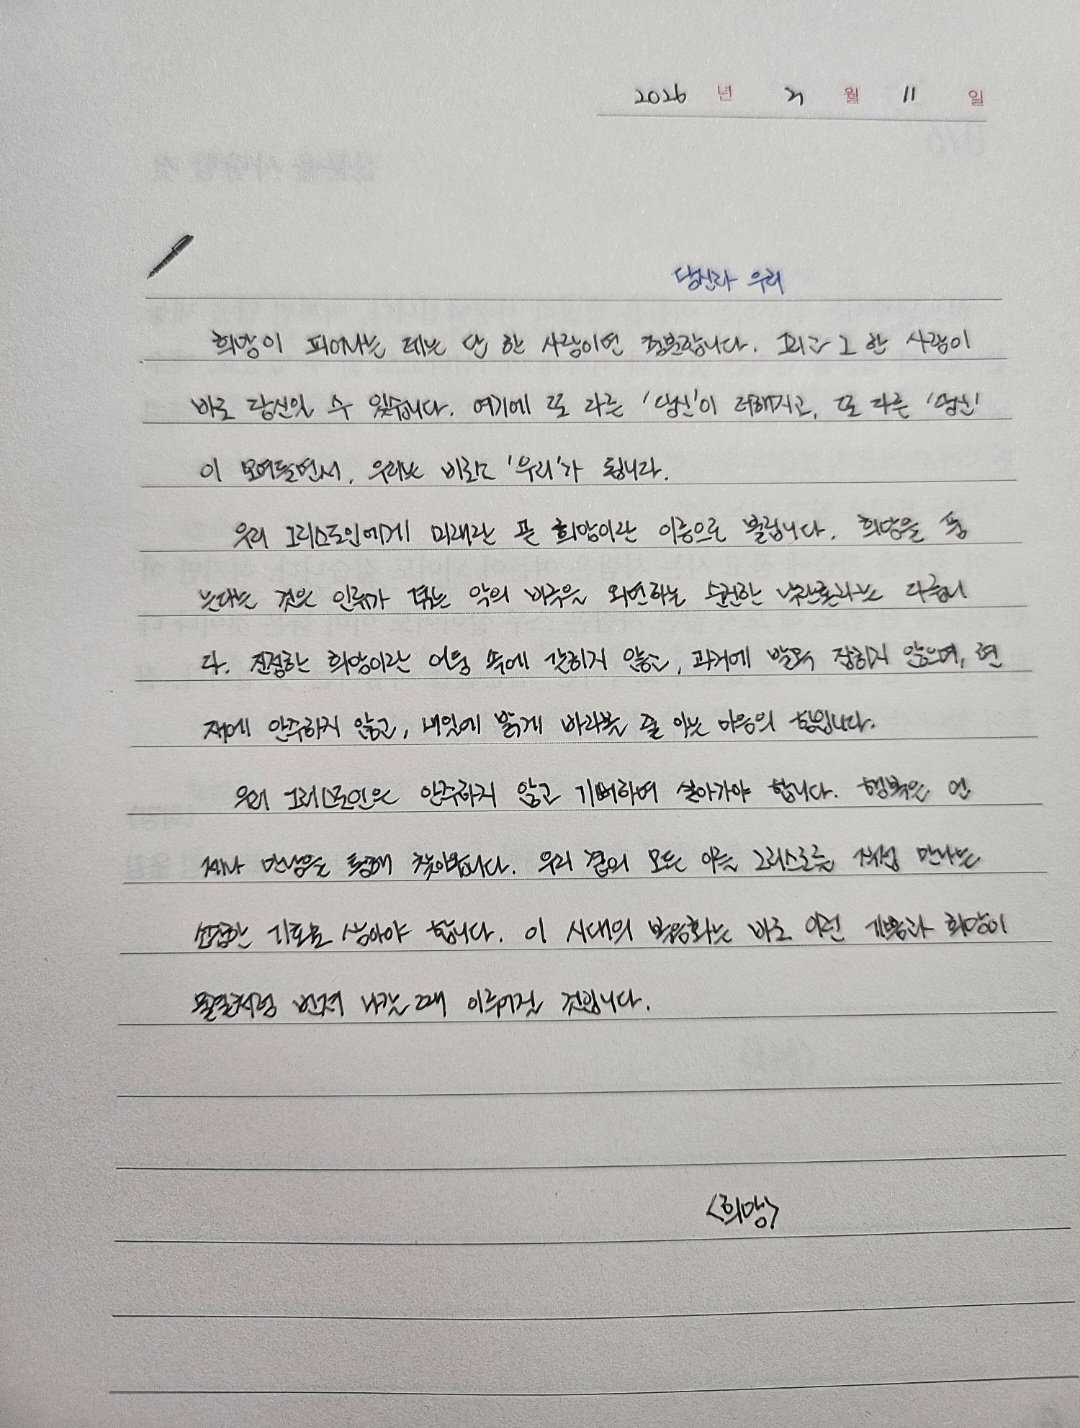 2026 년 월 11 일
당신과 우리
희망이 피어나는 데는 단 한 사람이면 충분합니다. 그리고 그 한 사람이
바로 당신일 수 있습니다. 여기에 또 다른 '당신'이 더해지고, 또 다른 '당신'
이 모여들면서, 우리는 비로소 '우리'가 됩니다.
우리 그리스도인에게 미래란 곧 희망이란 이름으로 불립니다. 희망을 품
는다는 것은 인류가 겪는 악의 비극을 외면하는 순진한 낙관론과는 다릅니
다. 진정한 희망이란 어둠 속에 갇히지 않고, 과거에 발목 잡히지 않으며, 현
재에 안주하지 않고, 내일에 밝게 바라볼 줄 아는 마음의 힘입니다.
우리 그리스도인은 안주하지 않고 기뻐하며 살아가야 합니다. 행복은 언
제나 만남을 통해 찾아옵니다. 우리 곁의 모든 이를 그리스도를 직접 만나는
소중한 기회로 삼아야 합니다. 이 시대의 복음화는 바로 이런 기쁨과 희망이
물결처럼 번져 나갈 때 이루어질 것입니다.
<희망>